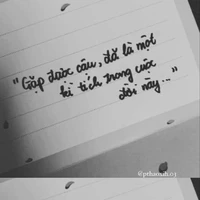 "Gặp được cậu, đã là một
kì tích trong cuộc
đời này..."